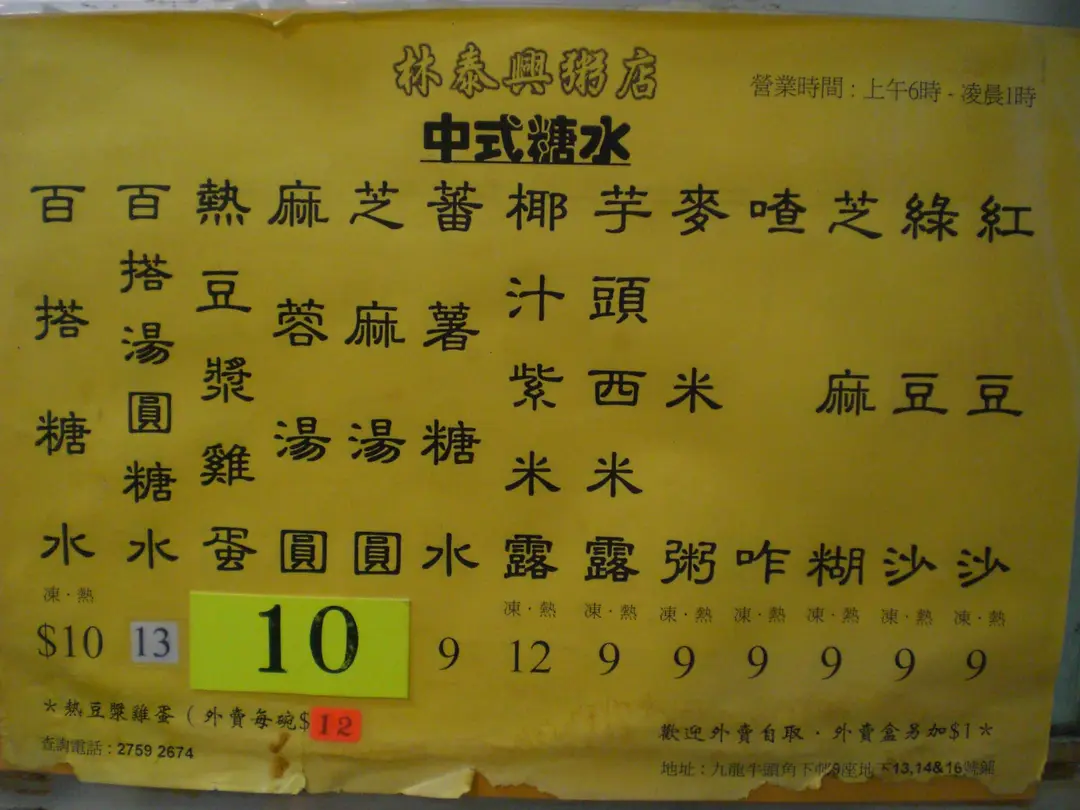 林泰興粥店
營業時間：上午6時 - 凌晨1時
中式糖水
紅豆沙
凍·熱
9
綠豆沙
凍·熱
9
芝麻糊
凍·熱
9
喳咋
凍·熱
9
麥米粥
凍·熱
9
芋頭西米露
凍·熱
9
椰汁紫米露
凍·熱
12
蕃薯糖水
9
芝麻湯圓
麻蓉湯圓
熱豆漿雞蛋
10
百搭湯圓糖水
13
百搭糖水
凍·熱
$10
*熱豆漿雞蛋（外賣每碗$12
查詢電話：2759 2674
歡迎外賣自取·外賣盒另加$1*
地址：九龍牛頭角下邨9座地下13,14&16號舖